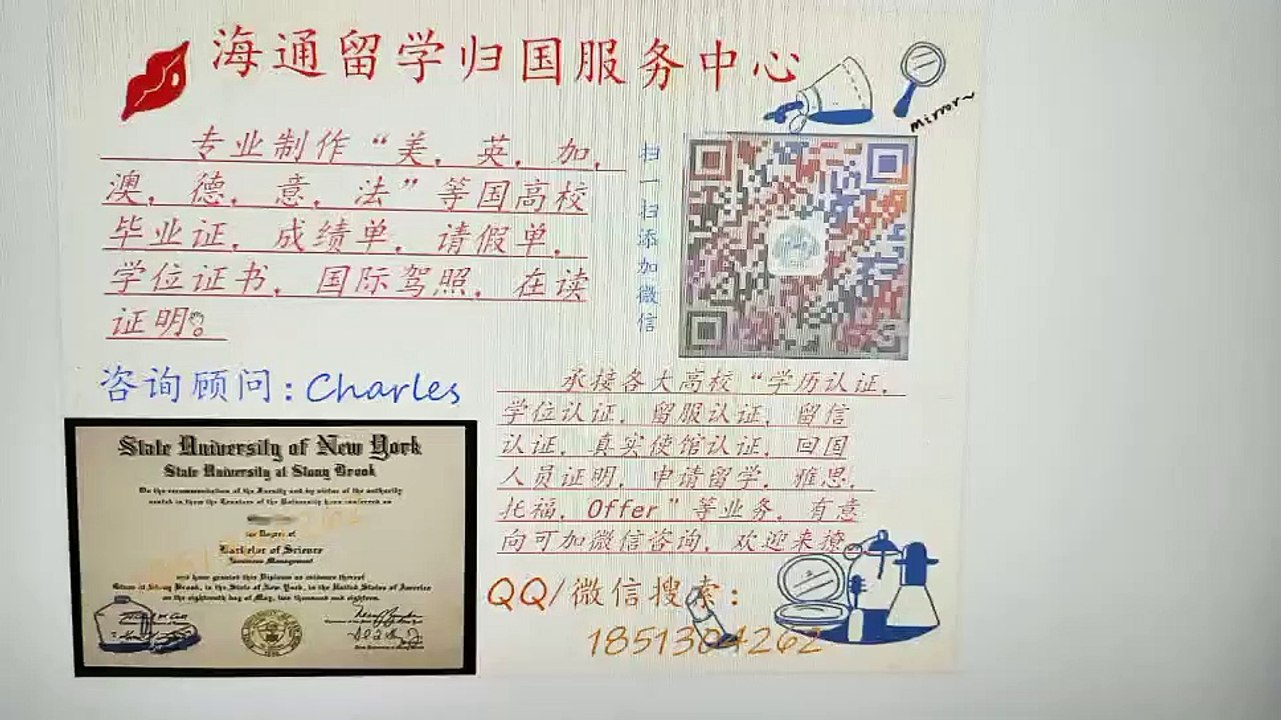 海通留学归国服务中心
mirror~
专业制作“美，英，加，
澳，德，意，法”等国高校
毕业证，成绩单，请假单，
学位证书，国际驾照，在读
证明。
扫一扫添加微信
咨询顾问:Charles
承接各大高校“学历认证，
学位认证，留服认证，留信
认证，真实使馆认证，回国
人员证明，申请留学，雅思，
托福，Offer”等业务，有意
向可加微信咨询，欢迎来撩
QQ/微信搜索:
1851304262
State University of New York
State University at Stony Brook
On the recommendation of the Faculty and by virtue of the authority
vested in them the Trustees of the University have conferred on
the Degree of
Bachelor of Science
Business Management
and have granted this Diploma as evidence thereof
Given at Stony Brook, in the State of New York, in the United States of America
on the eighteenth day of May, two thousand and eighteen.